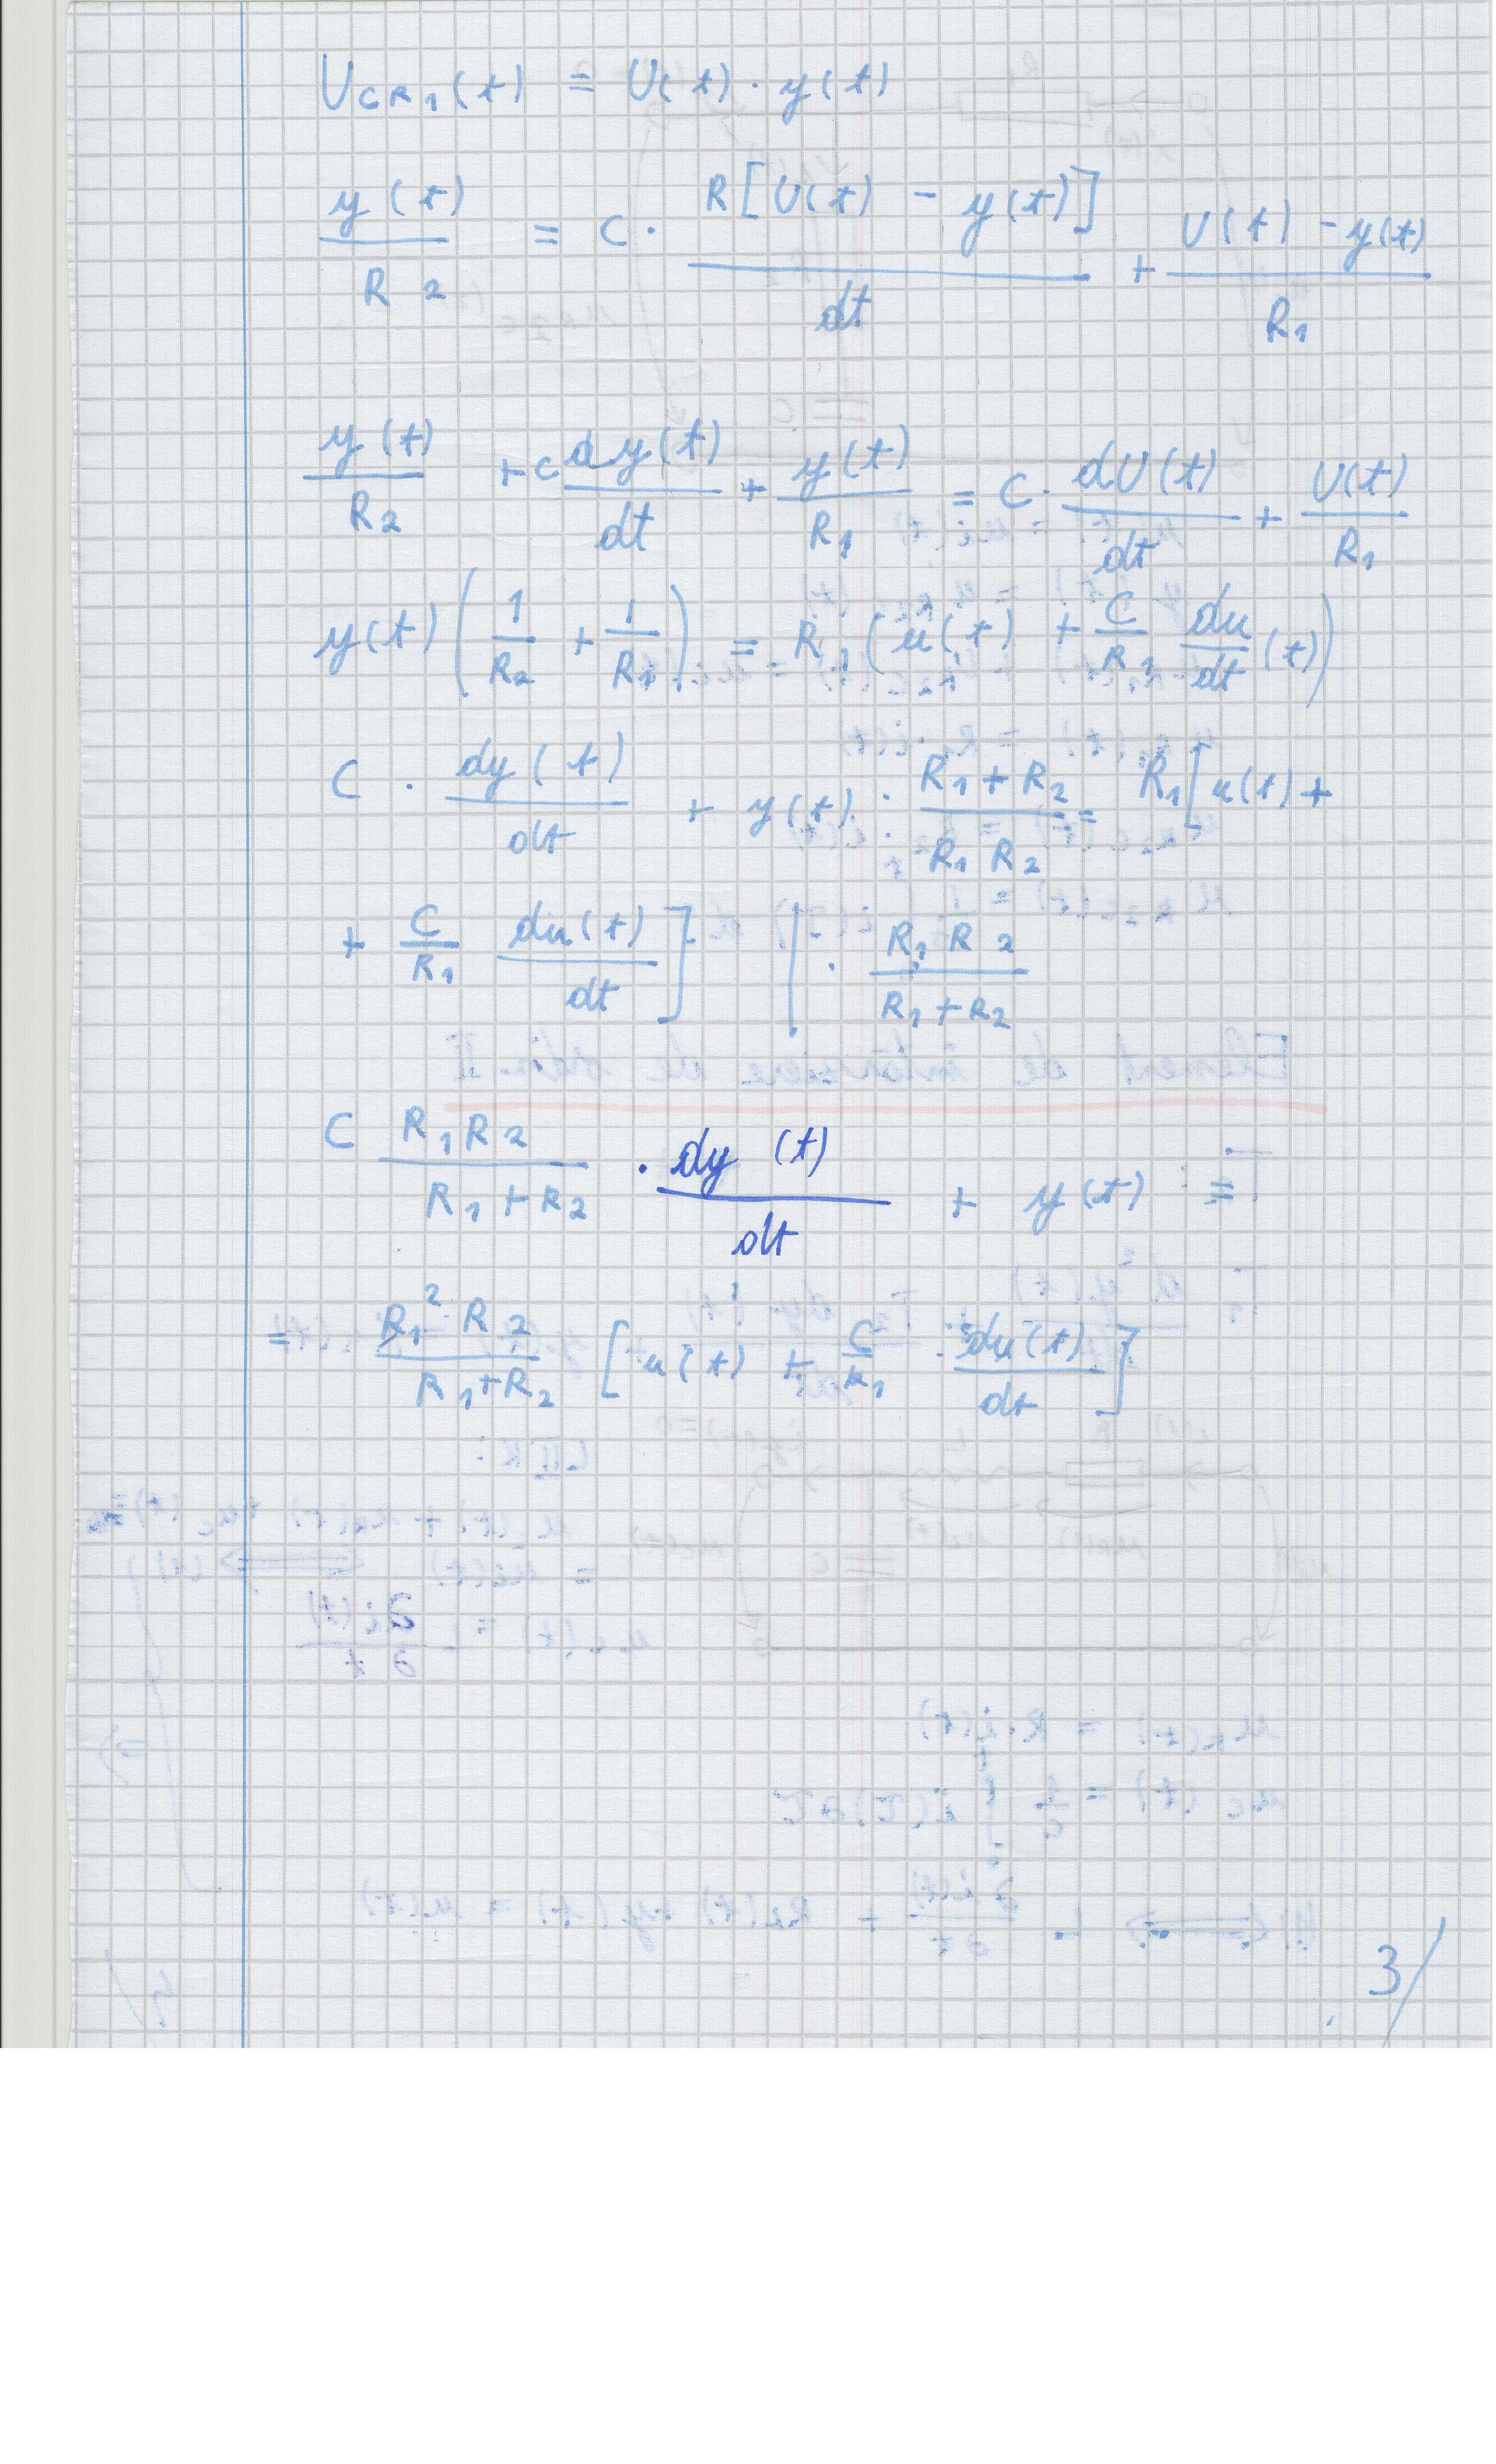 U_{CR1}(t) = U(t) · y(t)
y(t)/R2 = C · R[U(t) - y(t)]/dt + U(t) - y(t)/R1
y(t)/R2 + C dy(t)/dt + y(t)/R1 = C · dU(t)/dt + U(t)/R1
y(t) (1/R2 + 1/R1) = R1 (u(t) + C/R1 du/dt (t))
C · dy(t)/dt + y(t) · R1 + R2/R1 R2 = R1 [u(t) +
+ C/R1 du(t)/dt] | · R1 R2/R1 + R2
C R1 R2/R1 + R2 · dy(t)/dt + y(t) =
= R1² R2/R1 + R2 [u(t) + C/R1 · du(t)/dt]
3/